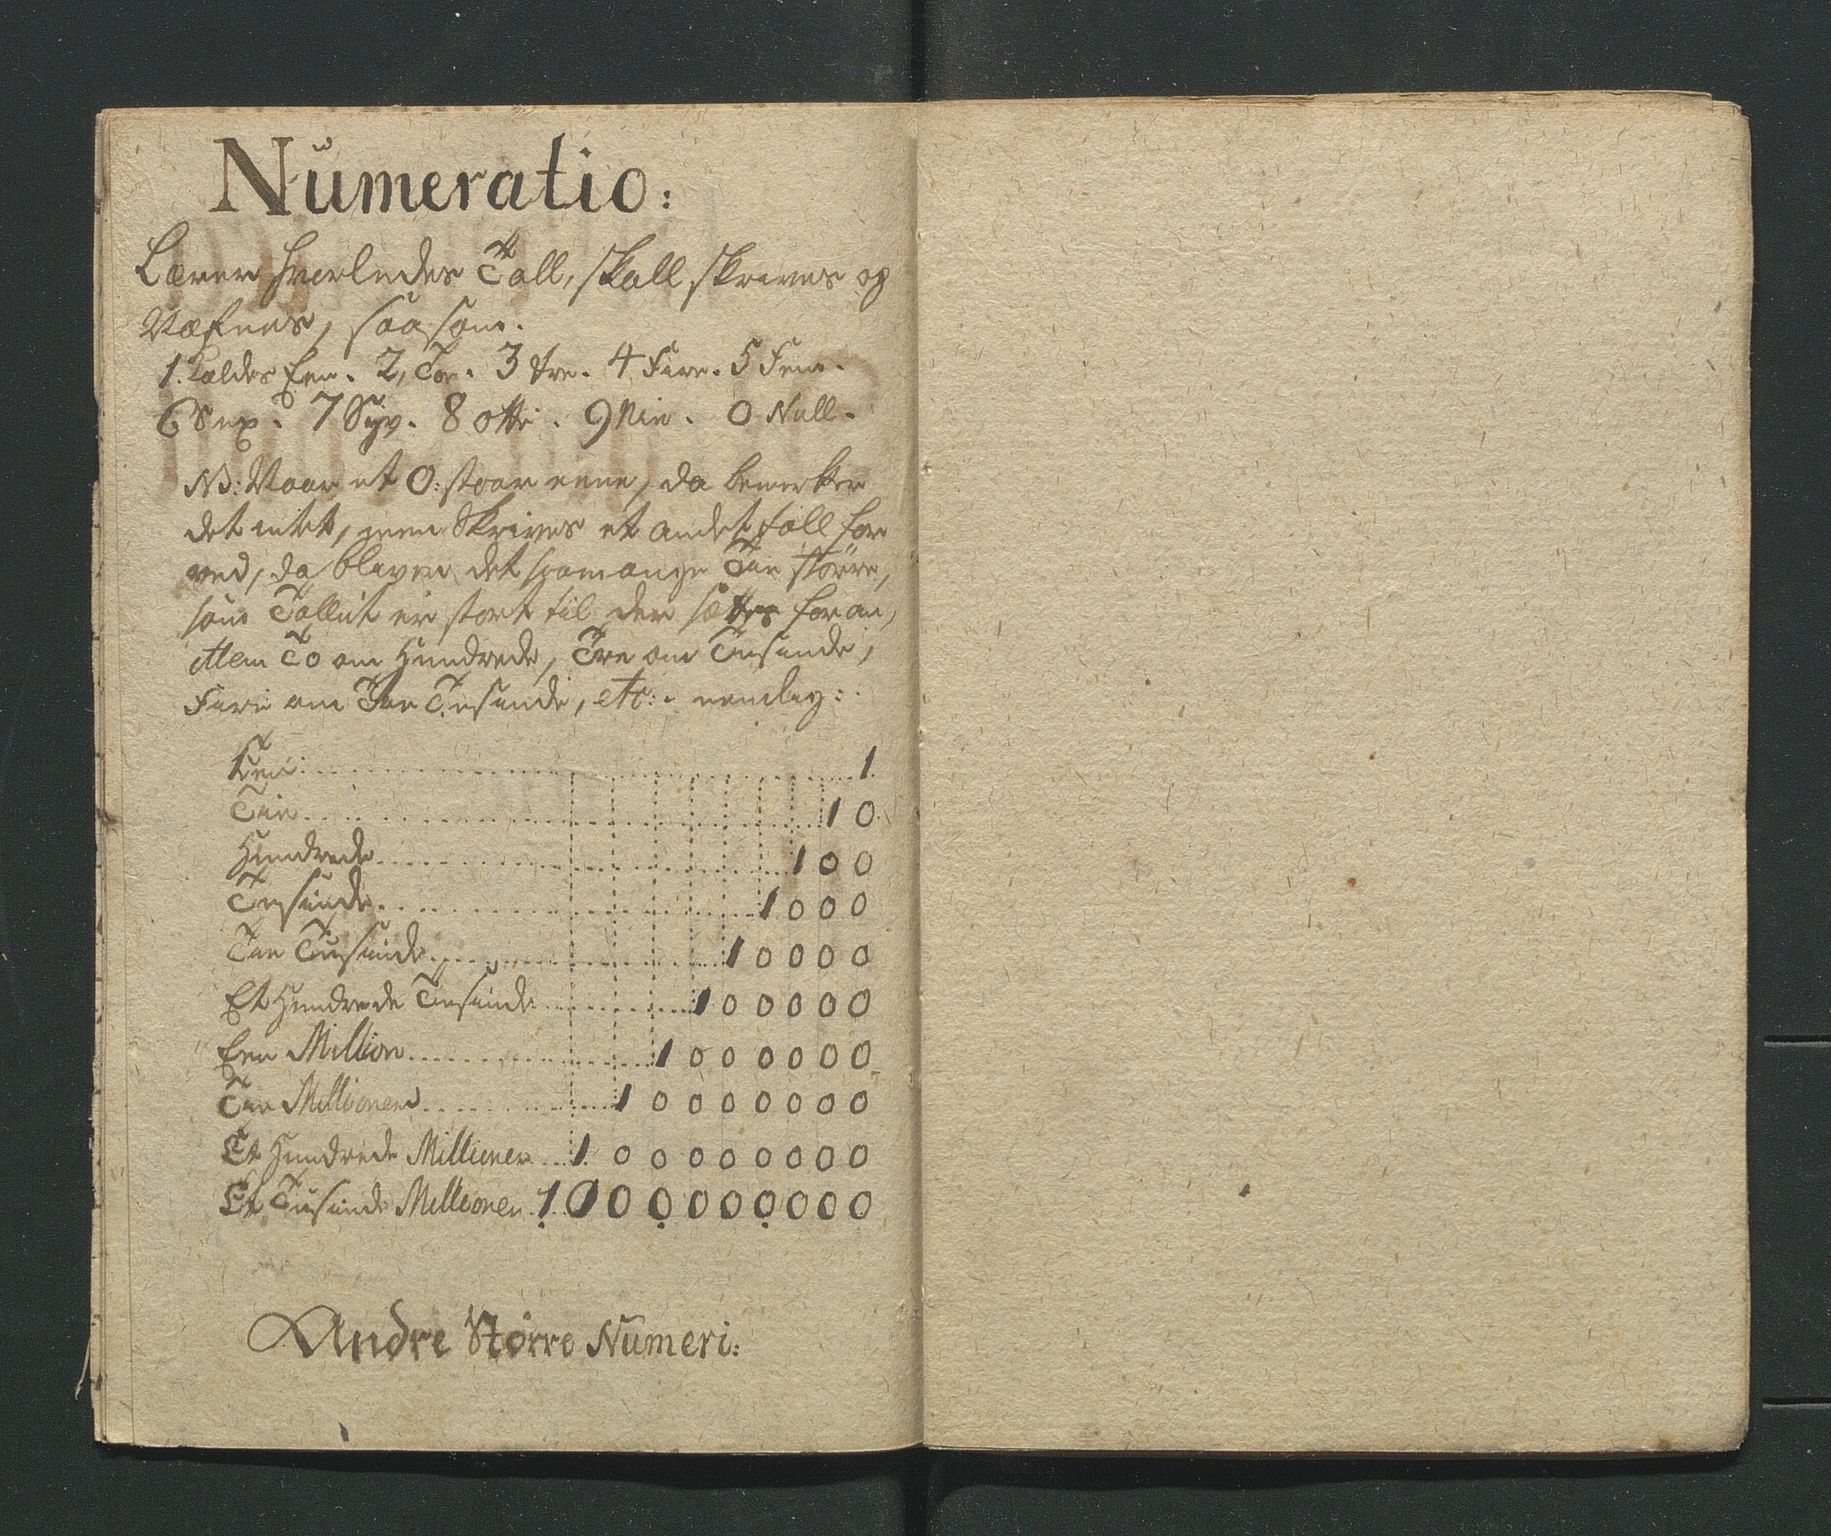 Numeratio:
Lærer hvorledes Tall, skall skrives og
Næfnes, saasom.
1. kaldes Een. 2, Toe. 3 tre. 4 Fire. 5 Fem.
6 Sex. 7 Syv. 8 otte. 9 Nie. 0 Null.
NB: Naar et 0: staar ene, da bemerker
det intet, men Skrives et andet tall for
ved, da bliver det saamange Tie større,
som Tallet er stort til der sættes foran,
Men To om Hundrede, Tre om Tusinde,
Fire om Tie Tusinde, etc: nemlig:
Een: 1.
Tie 10
Hundrede 100
Tusinde 1000
Tie Tusinde 10000
Et Hundrede Tusinde 100000
Een Million 1000000
Tie Millioner 10000000
Et Hundrede Millioner 100000000
Et Tusinde Millioner 1000000000
Andre Større Numeri: